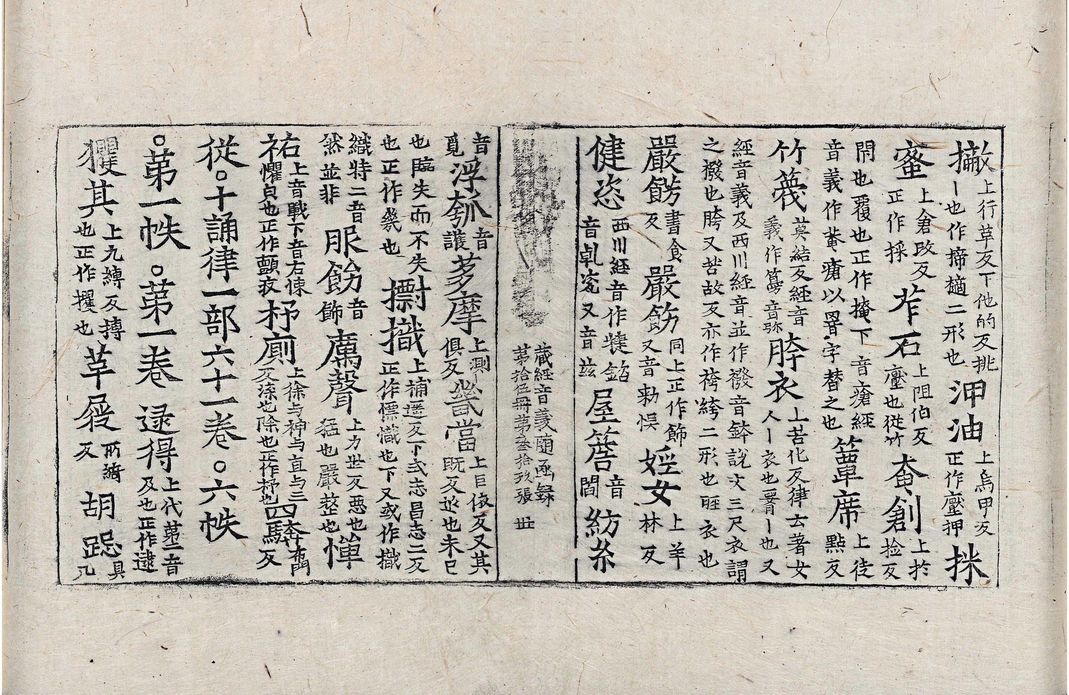 撇上行草反下他的反挑丨也作揥二形也 油上烏甲反正作壓押 採
蜜上倉改反正作採 苲石上阻伯反壓也從竹 㚛創上於撿反
閇也覆也正作掩下音瘡經音義作菴瘡以字替之也 簟席上徒點反
竹篾莫結反經音義作音弥 胯衣上苦化反律云著女人丨衣也丨也又
經音義及西川經音並作襏音鉢說文三尺衣謂之襏也胯又苦故反亦作袴絝二形也衣也
嚴餝書食反 嚴筯同上正作飾又音勑悞 婬女上羊林反
健恣西川經音作音乹恣又音兹 屋簷音閻 紡糸
藏經音義随函録 第拾伍冊第叁拾玖張 卌
音覓 浮瓠音護 蓃摩上測俱反 㡬當上巨依反又其既反近也未已
也臨失而不失也正作幾也 摽上補遥反下式志昌志二反正作慓幟也下又或作
織特二音並非 服飾音飾 厲聲上力世反惡也猛也嚴整也 憚
祐上音戰下音右悚懼皃也正作顫疫 杼廁上徐与神与直与三反滌也除也正作抒也 四䮪布角反
從。十誦律一部六十一卷。六帙
。第一帙 。第一卷 逯得上代二音及也正作逮
玃其上九縛反搏也正作攫也 草屣所綺反 胡跽具几